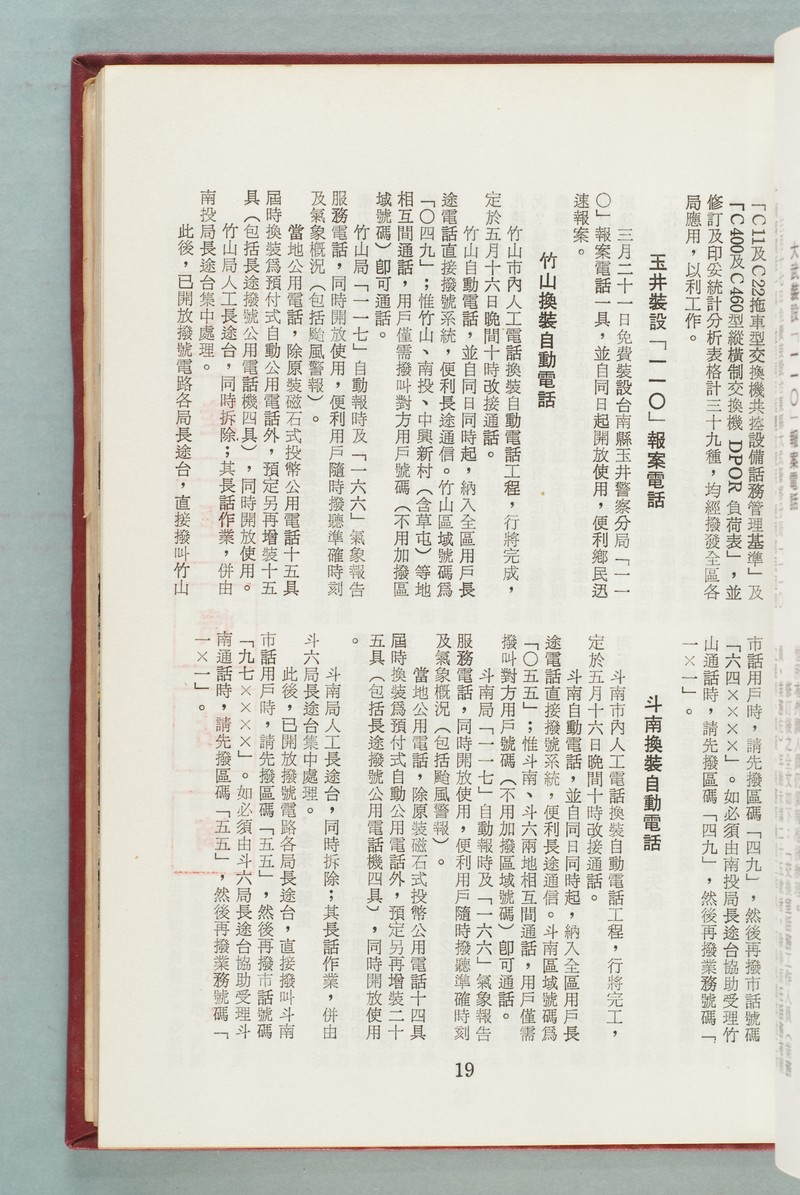 「C11及C22拖車型交換機共控設備話務管理基準」及
「C400及C460型縱橫制交換機 DPOR 負荷表」，並
修訂及印妥統計分析表格計三十九種，均經撥發全區各
局應用，以利工作。
玉井裝設「一一〇」報案電話
三月二十一日免費裝設台南縣玉井警察分局「一一
〇」報案電話一具，並自同日起開放使用，便利鄉民迅
速報案。
竹山換裝自動電話
竹山市內人工電話換裝自動電話工程，行將完成，
定於五月十六日晚間十時改接通話。
竹山自動電話，並自同日同時起，納入全區用戶長
途電話直接撥號系統，便利長途通信。竹山區域號碼爲
「〇四九」；惟竹山、南投、中興新村（含草屯）等地
相互間通話，用戶僅需撥叫對方用戶號碼（不用加撥區
域號碼）卽可通話。
竹山局「一一七」自動報時及「一六六」氣象報告
服務電話，同時開放使用，便利用戶隨時撥聽準確時刻
及氣象概況（包括颱風警報）。
當地公用電話，除原裝磁石式投幣公用電話十五具
屆時換裝爲預付式自動公用電話外，預定另再增裝十五
具（包括長途撥號公用電話機四具），同時開放使用。
竹山局人工長途台，同時拆除；其長話作業，併由
南投局長途台集中處理。
此後，已開放撥號電路各局長途台，直接撥叫竹山
市話用戶時，請先撥區碼「四九」，然後再撥市話號碼
「六四××××」。如必須由南投局長途台協助受理竹
山通話時，請先撥區碼「四九」，然後再撥業務號碼「
一×一」。
斗南換裝自動電話
斗南市內人工電話換裝自動電話工程，行將完工，
定於五月十六日晚間十時改接通話。
斗南自動電話，並自同日同時起，納入全區用戶長
途電話直接撥號系統，便利長途通信。斗南區域號碼爲
「〇五五」；惟斗南、斗六兩地相互間通話，用戶僅需
撥叫對方用戶號碼（不用加撥區域號碼）卽可通話。
斗南局「一一七」自動報時及「一六六」氣象報告
服務電話，同時開放使用，便利用戶隨時撥聽準確時刻
及氣象概況（包括颱風警報）。
當地公用電話，除原裝磁石式投幣公用電話十四具
屆時換裝爲預付式自動公用電話外，預定另再增裝二十
五具（包括長途撥號公用電話機四具），同時開放使用
。
斗南局人工長途台，同時拆除；其長話作業，併由
斗六局長途台集中處理。
此後，已開放撥號電路各局長途台，直接撥叫斗南
市話用戶時，請先撥區碼「五五」，然後再撥市話號碼
「九七××××」。如必須由斗六局長途台協助受理斗
南通話時，請先撥區碼「五五」，然後再撥業務號碼「
一×一」。
19